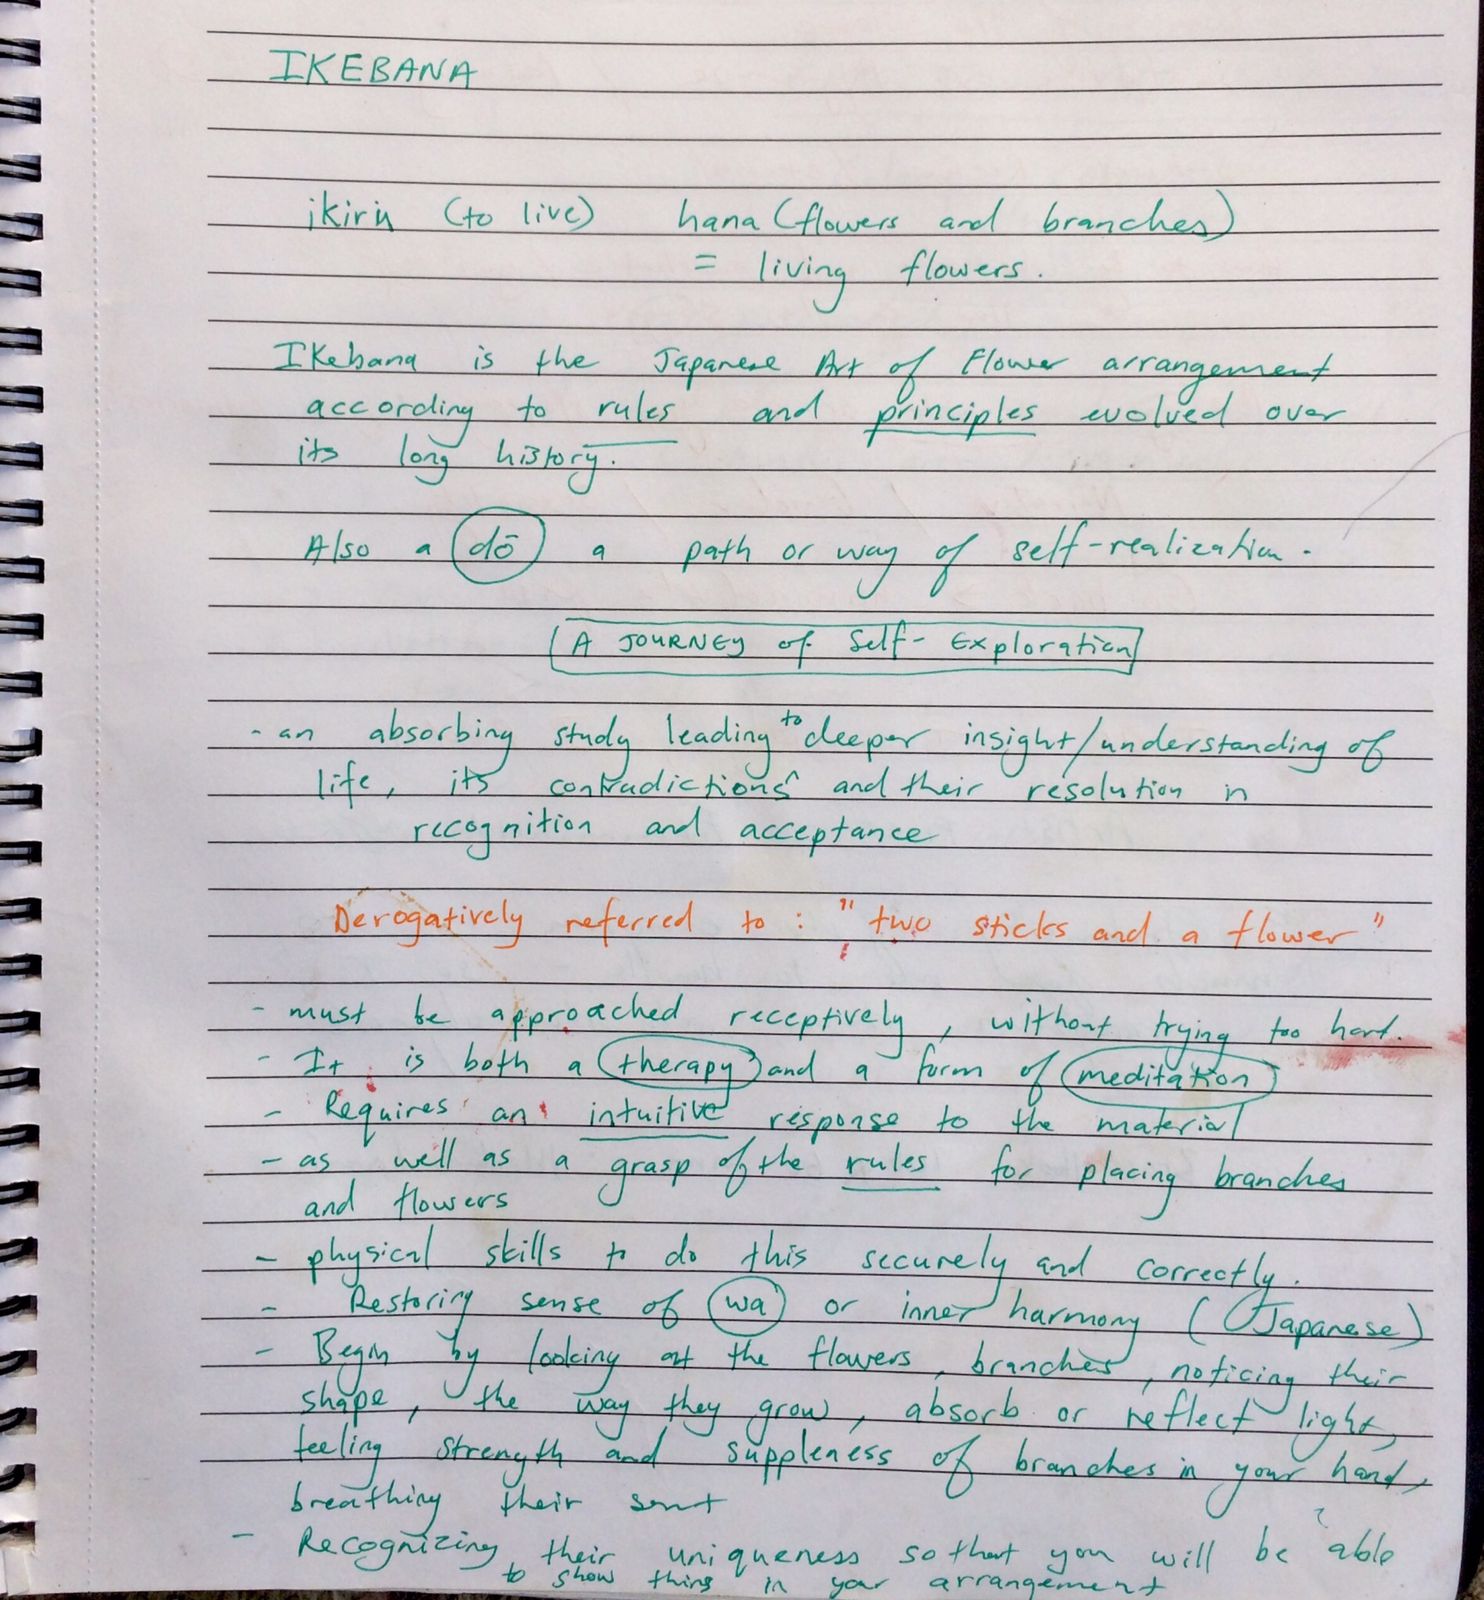 IKEBANA
ikiru (to live) hana (flowers and branches)
= living flowers.
Ikebana is the Japanese Art of Flower arrangement
according to rules and principles evolved over
its long history.
Also a dō a path or way of self-realization.
A JOURNEY of Self-Exploration
- an absorbing study leading to deeper insight/understanding of
life, its contradictions and their resolution in
recognition and acceptance
Derogatively referred to : "two sticks and a flower"
- must be approached receptively, without trying too hard.
- It is both a therapy and a form of meditation
- Requires an intuitive response to the material
- as well as a grasp of the rules for placing branches
and flowers
- physical skills to do this securely and correctly.
- Restoring sense of wa or inner harmony (Japanese)
- Begin by looking at the flowers, branches, noticing their
shape, the way they grow, absorb or reflect light,
feeling strength and suppleness of branches in your hand,
breathing their sent
- Recognizing their uniqueness so that you will be able
to show thins in your arrangement